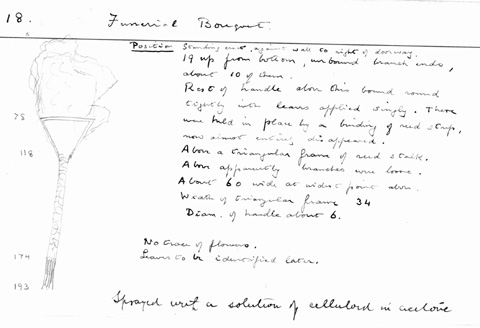 18. Funerial Bouquet.
Position Standing erect, against wall to right of doorway.
19 up from bottom, unbound branch ends,
about 10 of them.
Rest of handle above this bound round
tightly with leaves applied singly. These
were held in place by a binding of reed strip,
now almost entirely disappeared.
Above a triangular frame of reed stalk.
Above apparently branches were loose.
About 60 wide at widest point above.
Width of triangular frame 34
Diam. of handle about 6.
No trace of flowers.
Leaves to be identified later.
Sprayed with a solution of celluloid in acetone
78
118
174
193